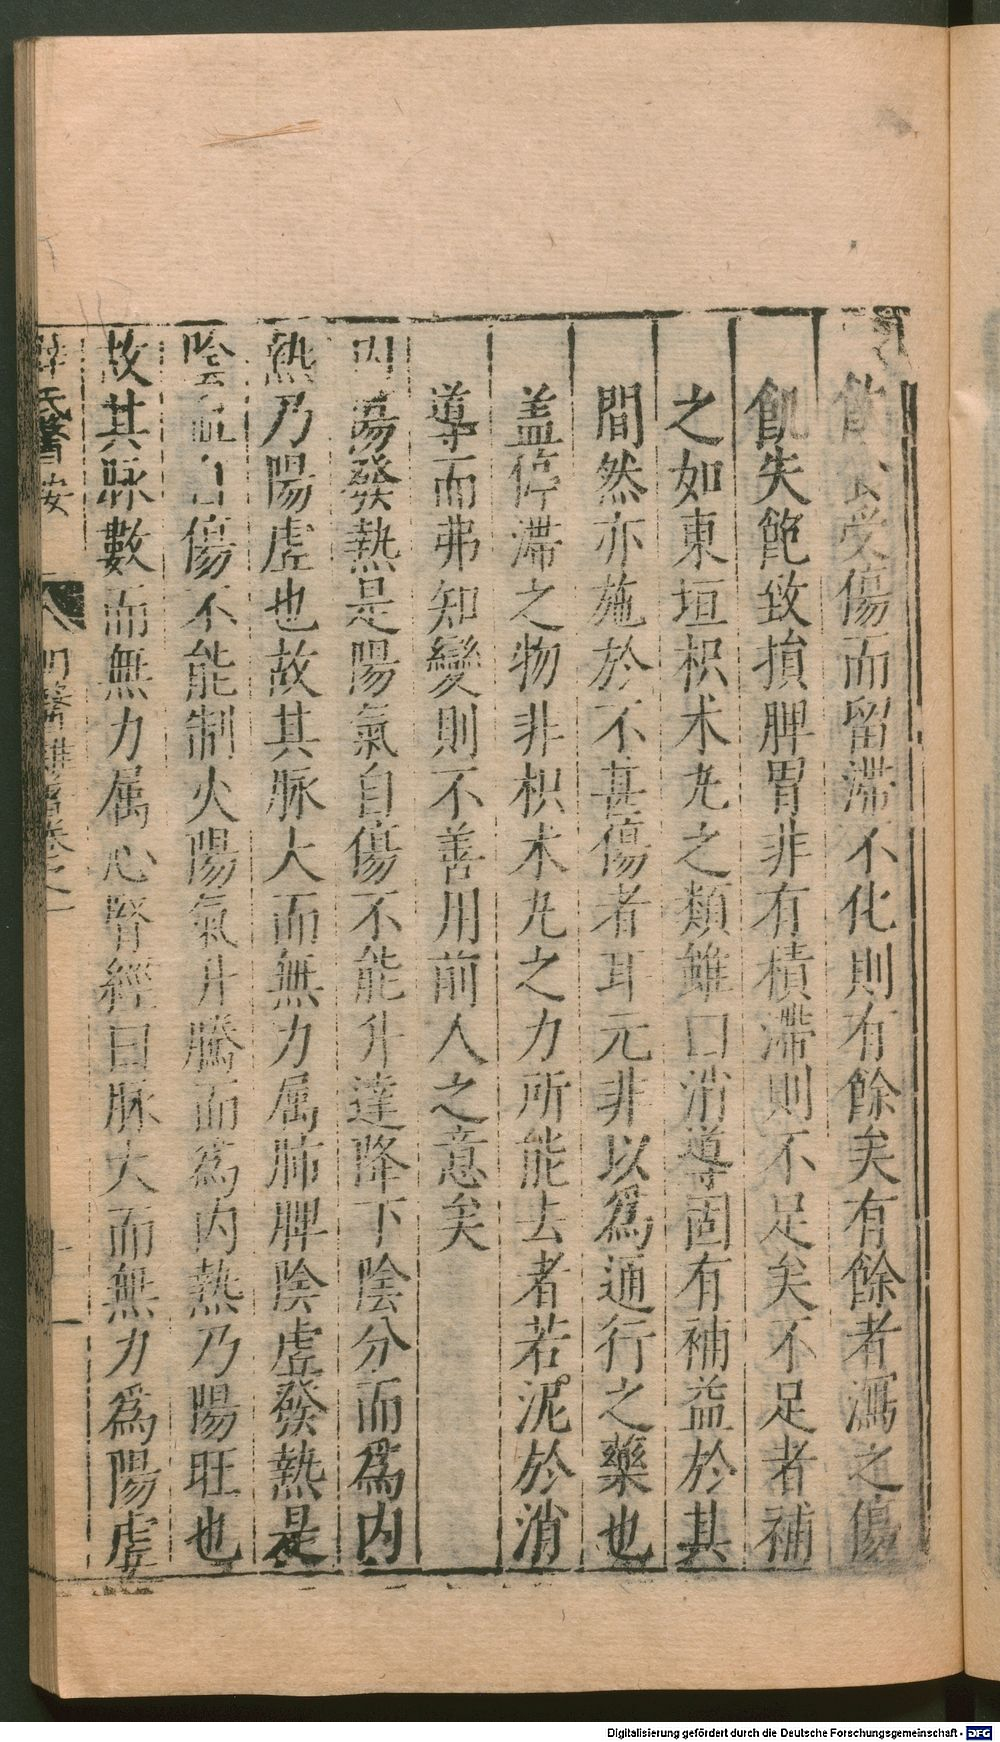 飲食受傷而留滯不化則有餘矣有餘者瀉之傷
飢失飽致損脾胃非有積滯則不足矣不足者補
之如東垣枳朮丸之類雖曰消導固有補益於其
間然亦施於不甚傷者耳元非以爲通行之藥也
盖停滯之物非枳朮丸之力所能去者若泥於消
導而弗知變則不善用前人之意矣
内傷發熱是陽氣自傷不能升達降下陰分而爲内
熱乃陽虚也故其脉大而無力属肺脾陰虚發熱是
陰血自傷不能制火陽氣升騰而爲内熱乃陽旺也
故其脉數而無力属心腎經曰脉大而無力爲陽虚
薛氏醫按 明醫雜著卷之一
Digitalisierung gefördert durch die Deutsche Forschungsgemeinschaft - DFG